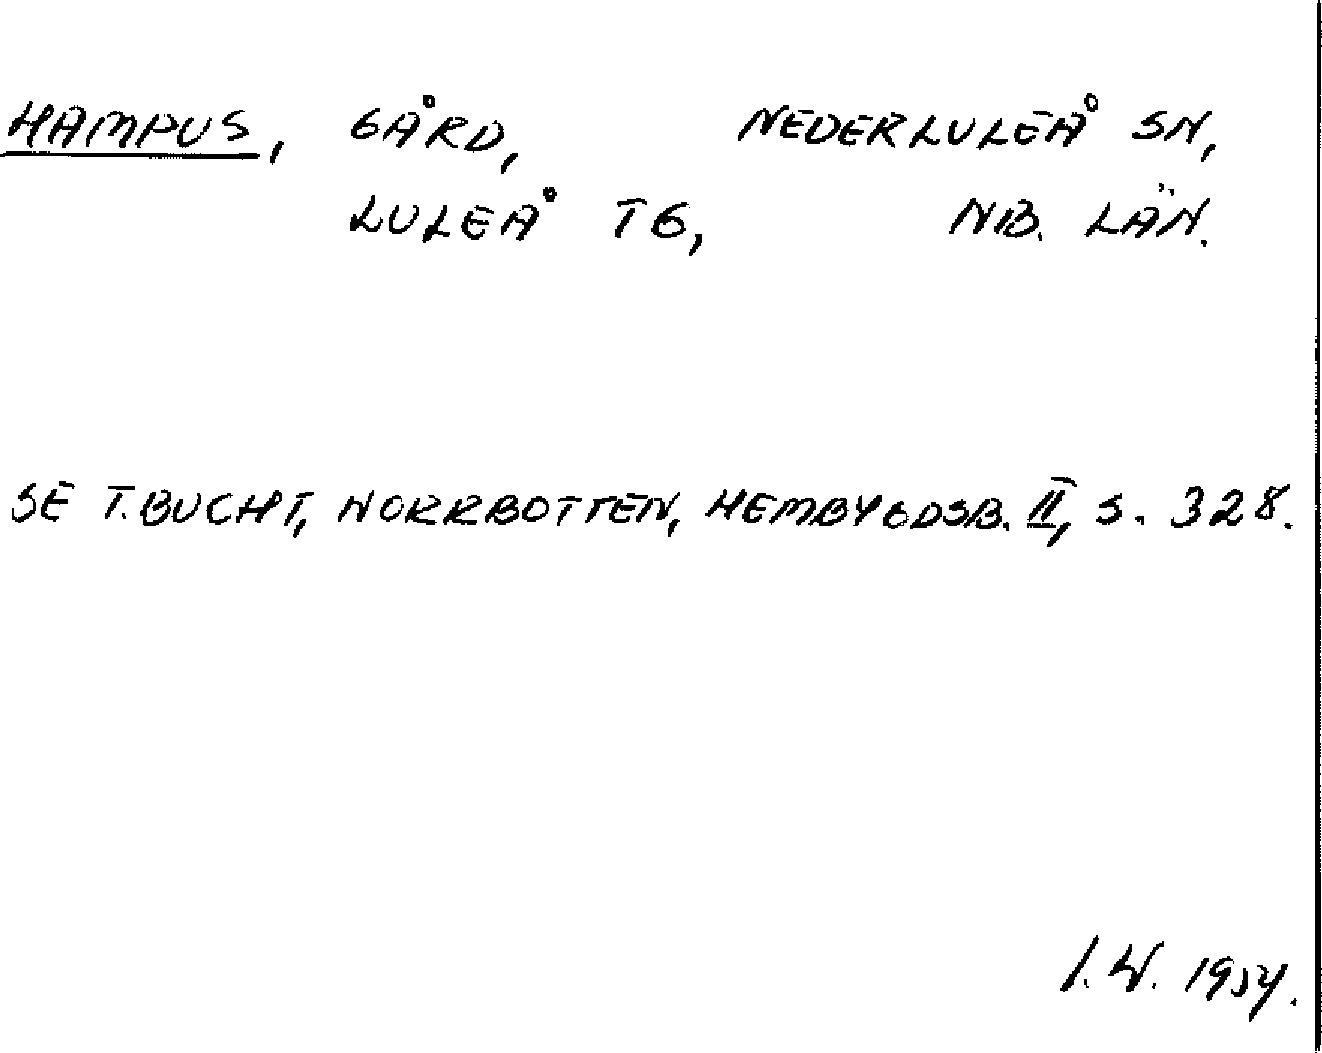 HAMPUS, GÅRD, NEDERLULEÅ SN,
LULEÅ TG, NB. LÄN.
SE T. BUCHT, NORRBOTTEN, HEMBYGDSB. II, S. 328.
I. W. 1954.